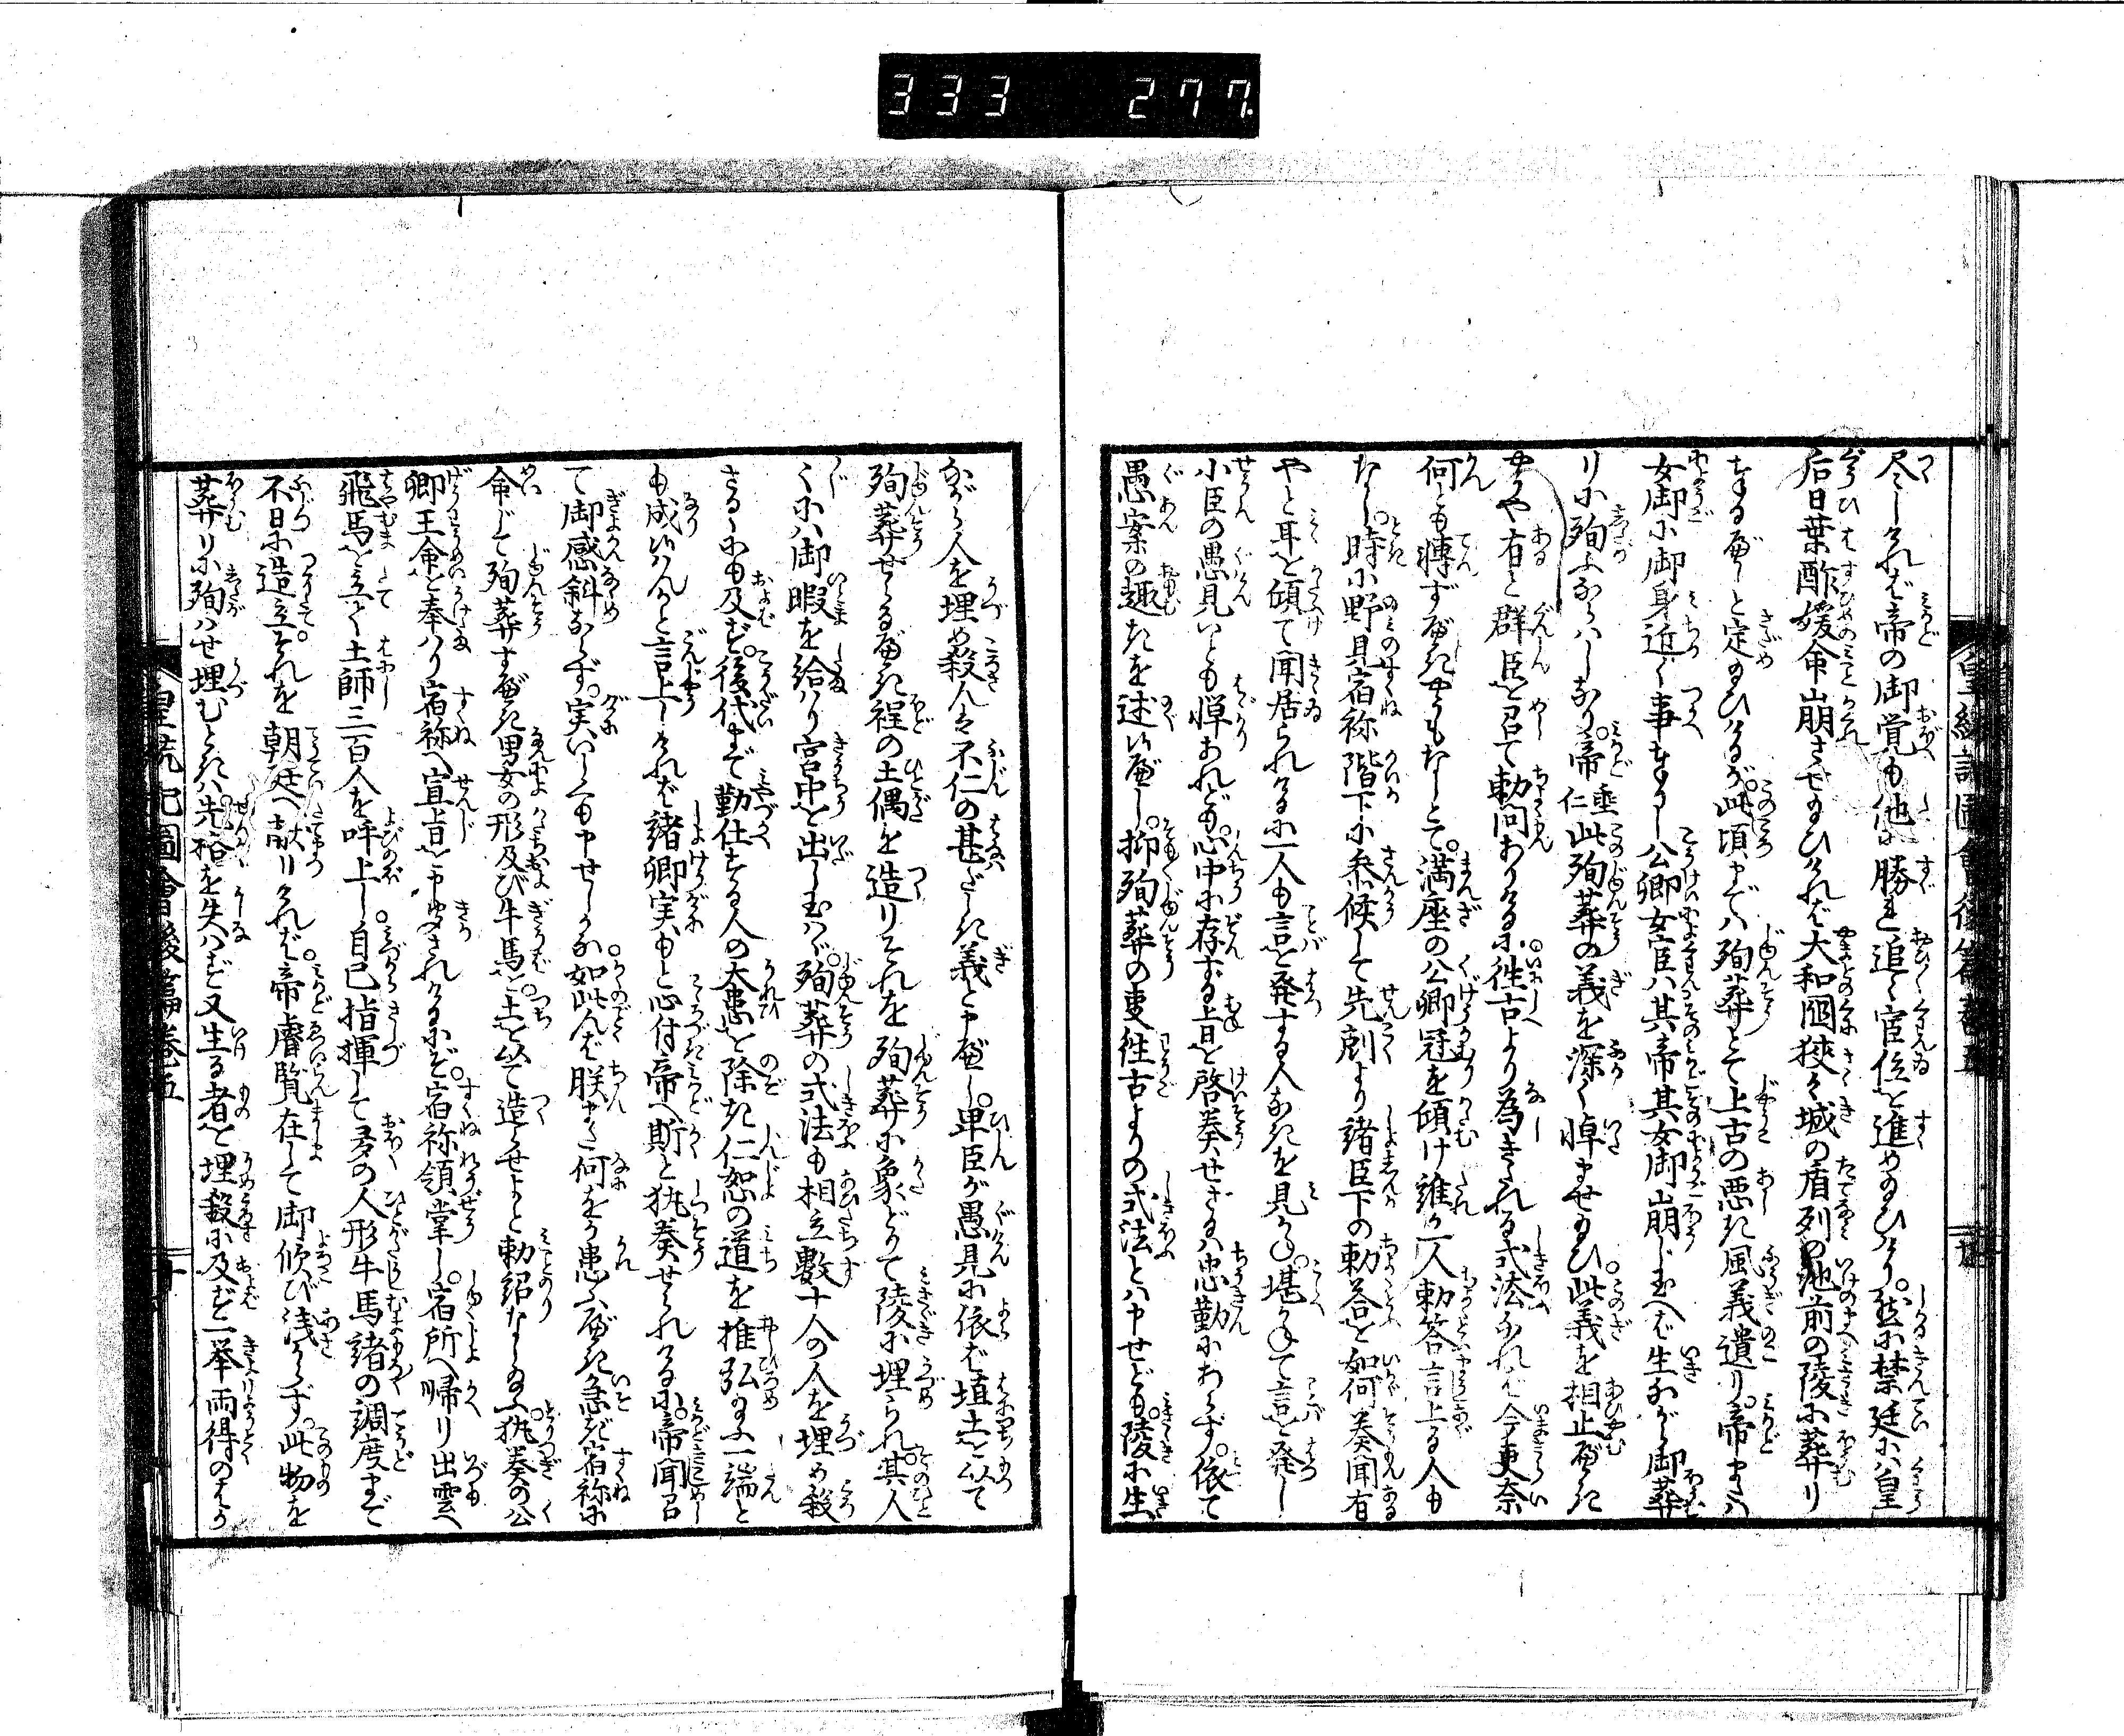 333 277
尽しければ帝の御覚も他に勝れ追々官位を進め給ひけり。然るに禁廷には皇
后日葉酢媛命崩ぎさせ給ひければ大和国狭々城の盾列の池前の陵に葬り
奉るべしと定め給ひけるが。此頃までは殉葬とて上古の悪き風義遺り。帝または
女御に御身近く事奉りし公卿女官は其帝其女御崩じ玉へば生ながら御葬
りに殉ふならはしなり。帝垂仁此殉葬の義を深く悼ませ給ひ。此義を相止べき
やと有て群臣を召て勅問ありけるに。往古より為きたれる式法なれば今更奈
何とも転ずべきやうもなしとて。満座の公卿冠を傾け誰一人勅答言上る人も
なし。時に野見宿祢階下に参候して先剋より諸臣下の勅答を如何奏聞有
やと耳を傾て聞居られけるに一人も言を発する人なきを見るに。堪かねて言を発し
小臣の愚見いとも憚あれども。心中に存する旨を啓奏せざるは忠勤にあらず。依て
愚案の趣きを述候べし。抑殉葬の事往古よりの式法とは申せども。陵に生
ながら人を埋め殺んは不仁の甚だしき義と申べし。卑臣が愚見に依ば埴土を以て
殉葬せらるべき程の土偶を造りそれを殉葬に象どりて陵に埋られ。其人
〳〵には御暇を給はり宮中を出し玉はゞ。殉葬の式法も相立数十人の人を埋め殺
さるゝにも及ばず。後代まで勤仕する人の大患を除き仁恕の道を推弘め給ふ一端と
も成候はんかと言上しければ。諸卿実もと心付帝へ斯と執奏せられけるに。帝聞召
て御感斜ならず。実いしくも申せしかな。如此んば朕また何をか患ふべき急ぎ宿祢に
命じて殉葬すべき男女の形及び牛馬を。土を以て造らせよと勅紹なし給ふ。執奏の公
卿王命を奉はり宿祢へ宣旨を申聞されけるにぞ。宿祢領掌し。宿所へ帰り出雲へ
飛馬を立て土師三百人を呼上し。自己指揮して多の人形牛馬諸の調度まで
不日に造立。それを朝廷へ献りければ。帝睿覧在して御倾び浅からず。此物を
葬りに殉はせ埋むときは。先格を失はず又生る者を埋殺に及ばず一挙両得のはか
皇統記圖會後篇巻五